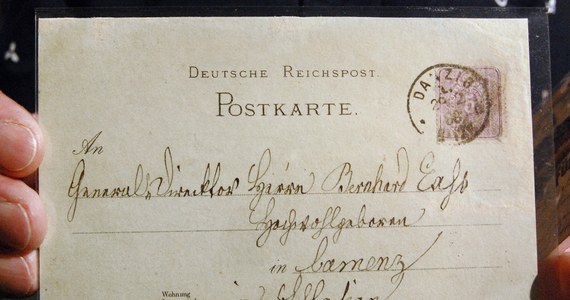 DEUTSCHE REICHSPOST.
POSTKARTE.
DANZIG
An
General Direcktor Herrn Bernhard
Hochwohlgeboren
in Camenz
Wohnung
in Schlesien